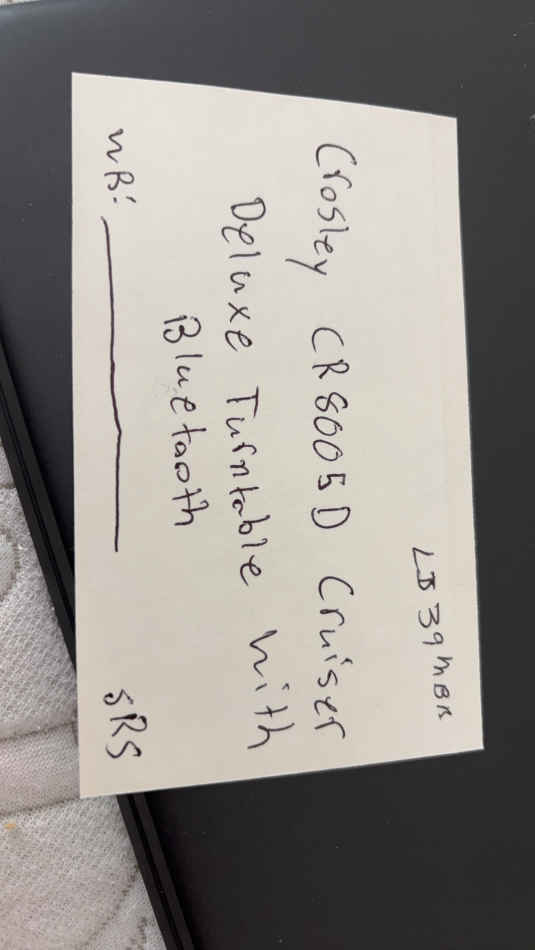 LD39MBR
Crosley CR8005D Cruiser
Deluxe Turntable with
Bluetooth
WB: sRS